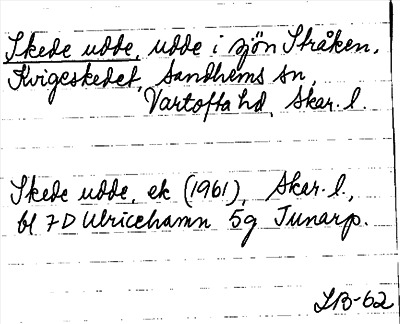 Skede udde, udde i sjön Stråken,
Kvigeskedet, Sandhems sn,
Vartofta hd, Skar. l.
Skede udde, ek (1961), Skar. l.,
bl 7D Ulricehamn 5g Junarp.
LB-62